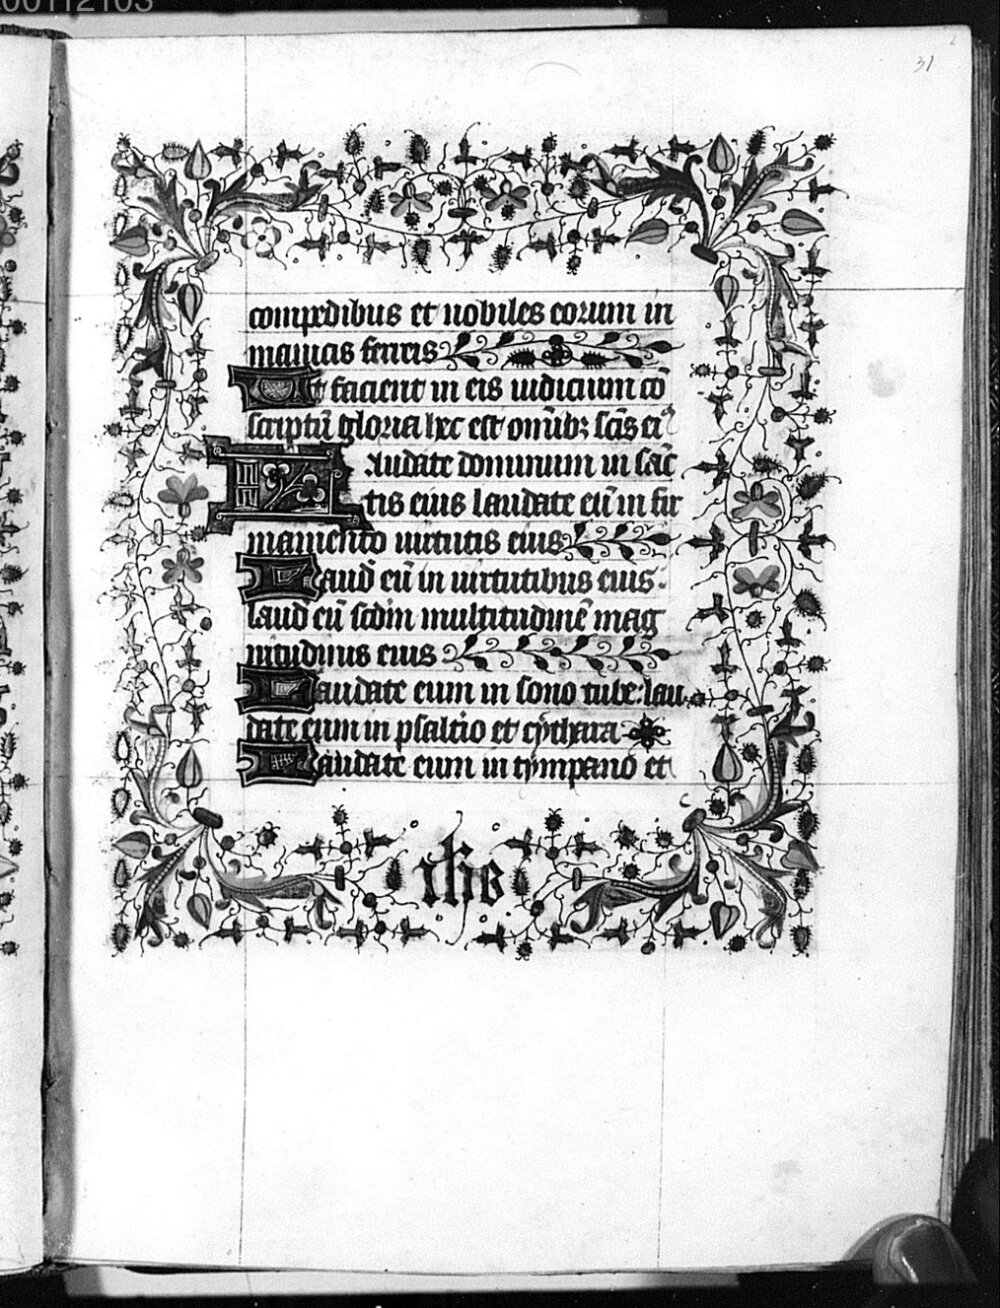 00112103
31
compedibus et nobiles eorum in
manicis ferreis
Ut facient in eis iudicium cō
scriptū gloria hec est omīb; scīs eiꝰ
Laudate dominum in sāc
tis eius laudate eū in fir
mamento uirtutis eius
Laud̄ eū in uirtutibus eius:
laud̄ eū scdm̄ multitudinē mag
nitudinis eius
Laudate eum in sono tube: lau
date eum in psaltīo et cythara
Laudate eum in tympano et
ihs